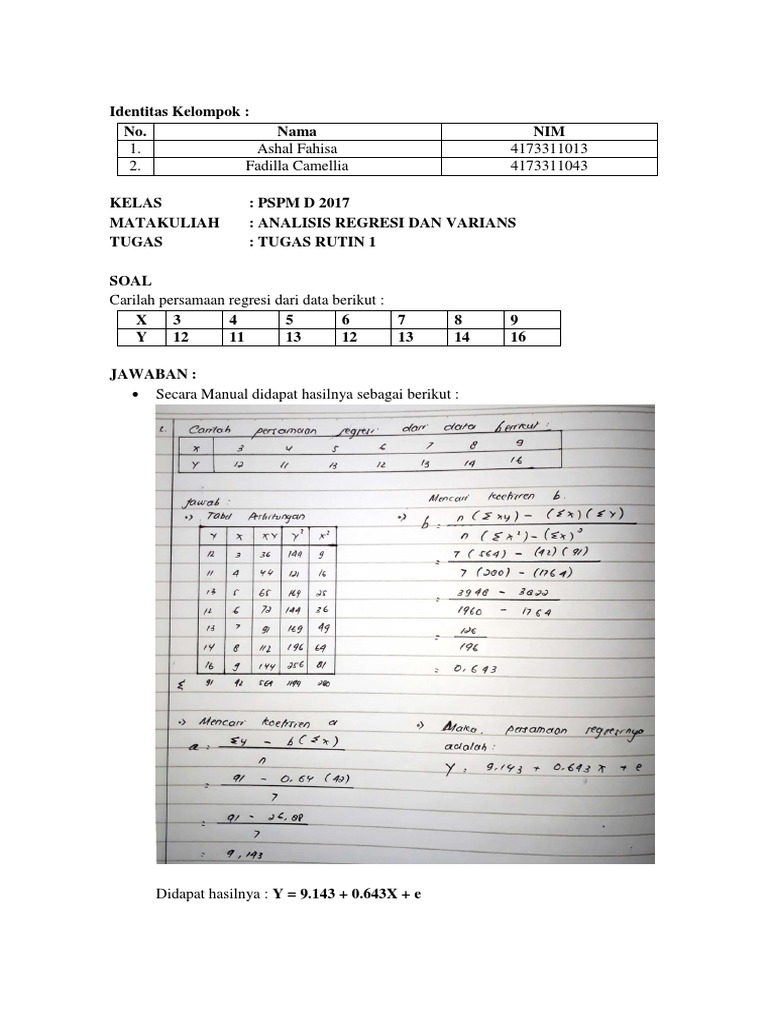 Identitas Kelompok :
No. Nama NIM
1. Ashal Fahisa 4173311013
2. Fadilla Camellia 4173311043
KELAS : PSPM D 2017
MATAKULIAH : ANALISIS REGRESI DAN VARIANS
TUGAS : TUGAS RUTIN 1
SOAL
Carilah persamaan regresi dari data berikut :
X 3 4 5 6 7 8 9
Y 12 11 13 12 13 14 16
JAWABAN :
• Secara Manual didapat hasilnya sebagai berikut :
1. Carilah persamaan regresi dari data berikut :
X 3 4 5 6 7 8 9
Y 12 11 13 12 13 14 16
Jawab :
•) Tabel Perhitungan
Y X XY Y² X²
12 3 36 144 9
11 4 44 121 16
13 5 65 169 25
12 6 72 144 36
13 7 91 169 49
14 8 112 196 64
16 9 144 256 81
Σ 91 42 564 1199 280
Mencari koefisien b.
•) b = n (Σxy) - (Σx)(Σy)
n (Σx²) - (Σx)²
= 7 (564) - (42)(91)
7 (280) - (1764)
= 3948 - 3822
1960 - 1764
= 126
196
= 0.643
•) Mencari koefisien a
a = Σy - b(Σx)
n
= 91 - 0.64 (42)
7
= 91 - 26,88
7
= 9,143
•) Maka, persamaan regresinya
adalah :
Y = 9.143 + 0.643 x + e
Didapat hasilnya : Y = 9.143 + 0.643X + e